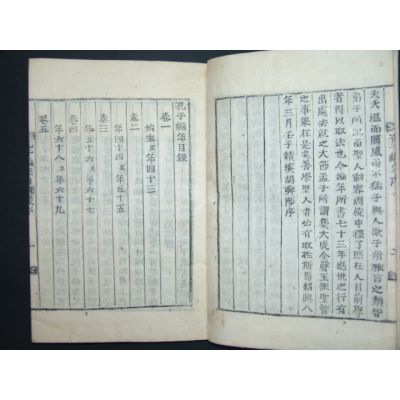 夭夭溫而厲威而不猛子與人歌子所雅言之類皆
弟子所記而聖人動容周旋中禮了然在人目前學
者得以取法也今編年所書七十三年應世之行有
出處去就之大節孟子所謂集大成金聲玉振聖智
之事畢在是矣善學聖人者必有取於斯焉紹興八
年三月壬子績溪胡舜陟序
孔子編年目錄
卷一
始生至年四十三
卷二
年四十四至年五十五
卷三
年五十六至年六十七
卷四
年六十八至年六十九
卷五